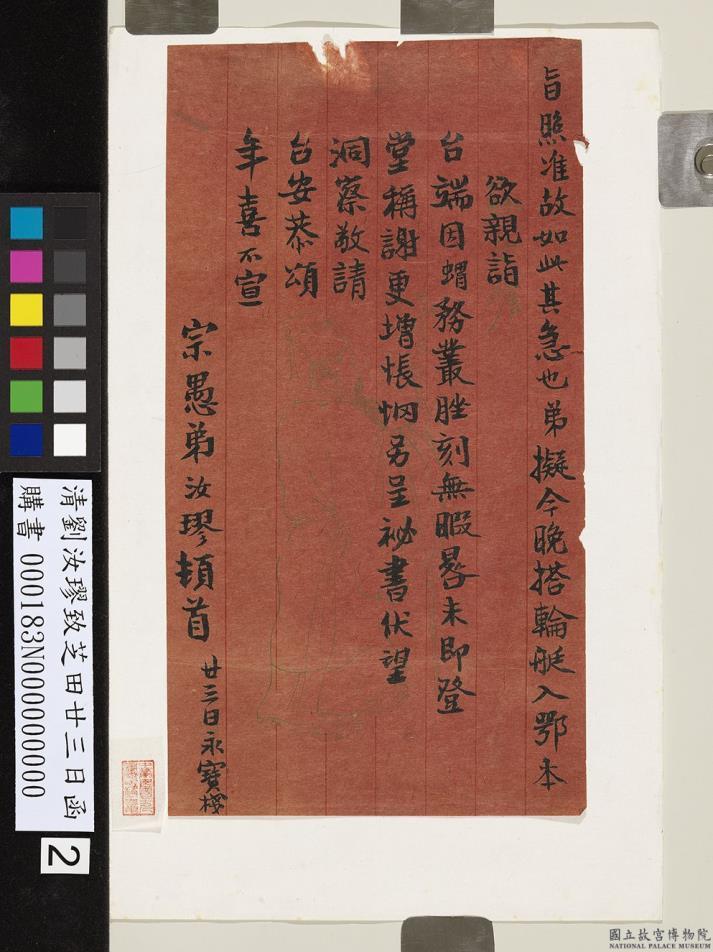 旨照准故如此其急也弟擬今晚搭輪艇入鄂本
欲親詣
台端因蝟務叢脞刻無暇晷未即登
堂稱謝更增悵惘另呈祕書伏望
洞察敬請
台安恭頌
年喜不宣
宗愚弟汝璆頓首
廿三日永寶棧
清劉汝璆致芝田廿三日函
購書 000183N000000000
2
國立故宮博物院
NATIONAL PALACE MUSEUM